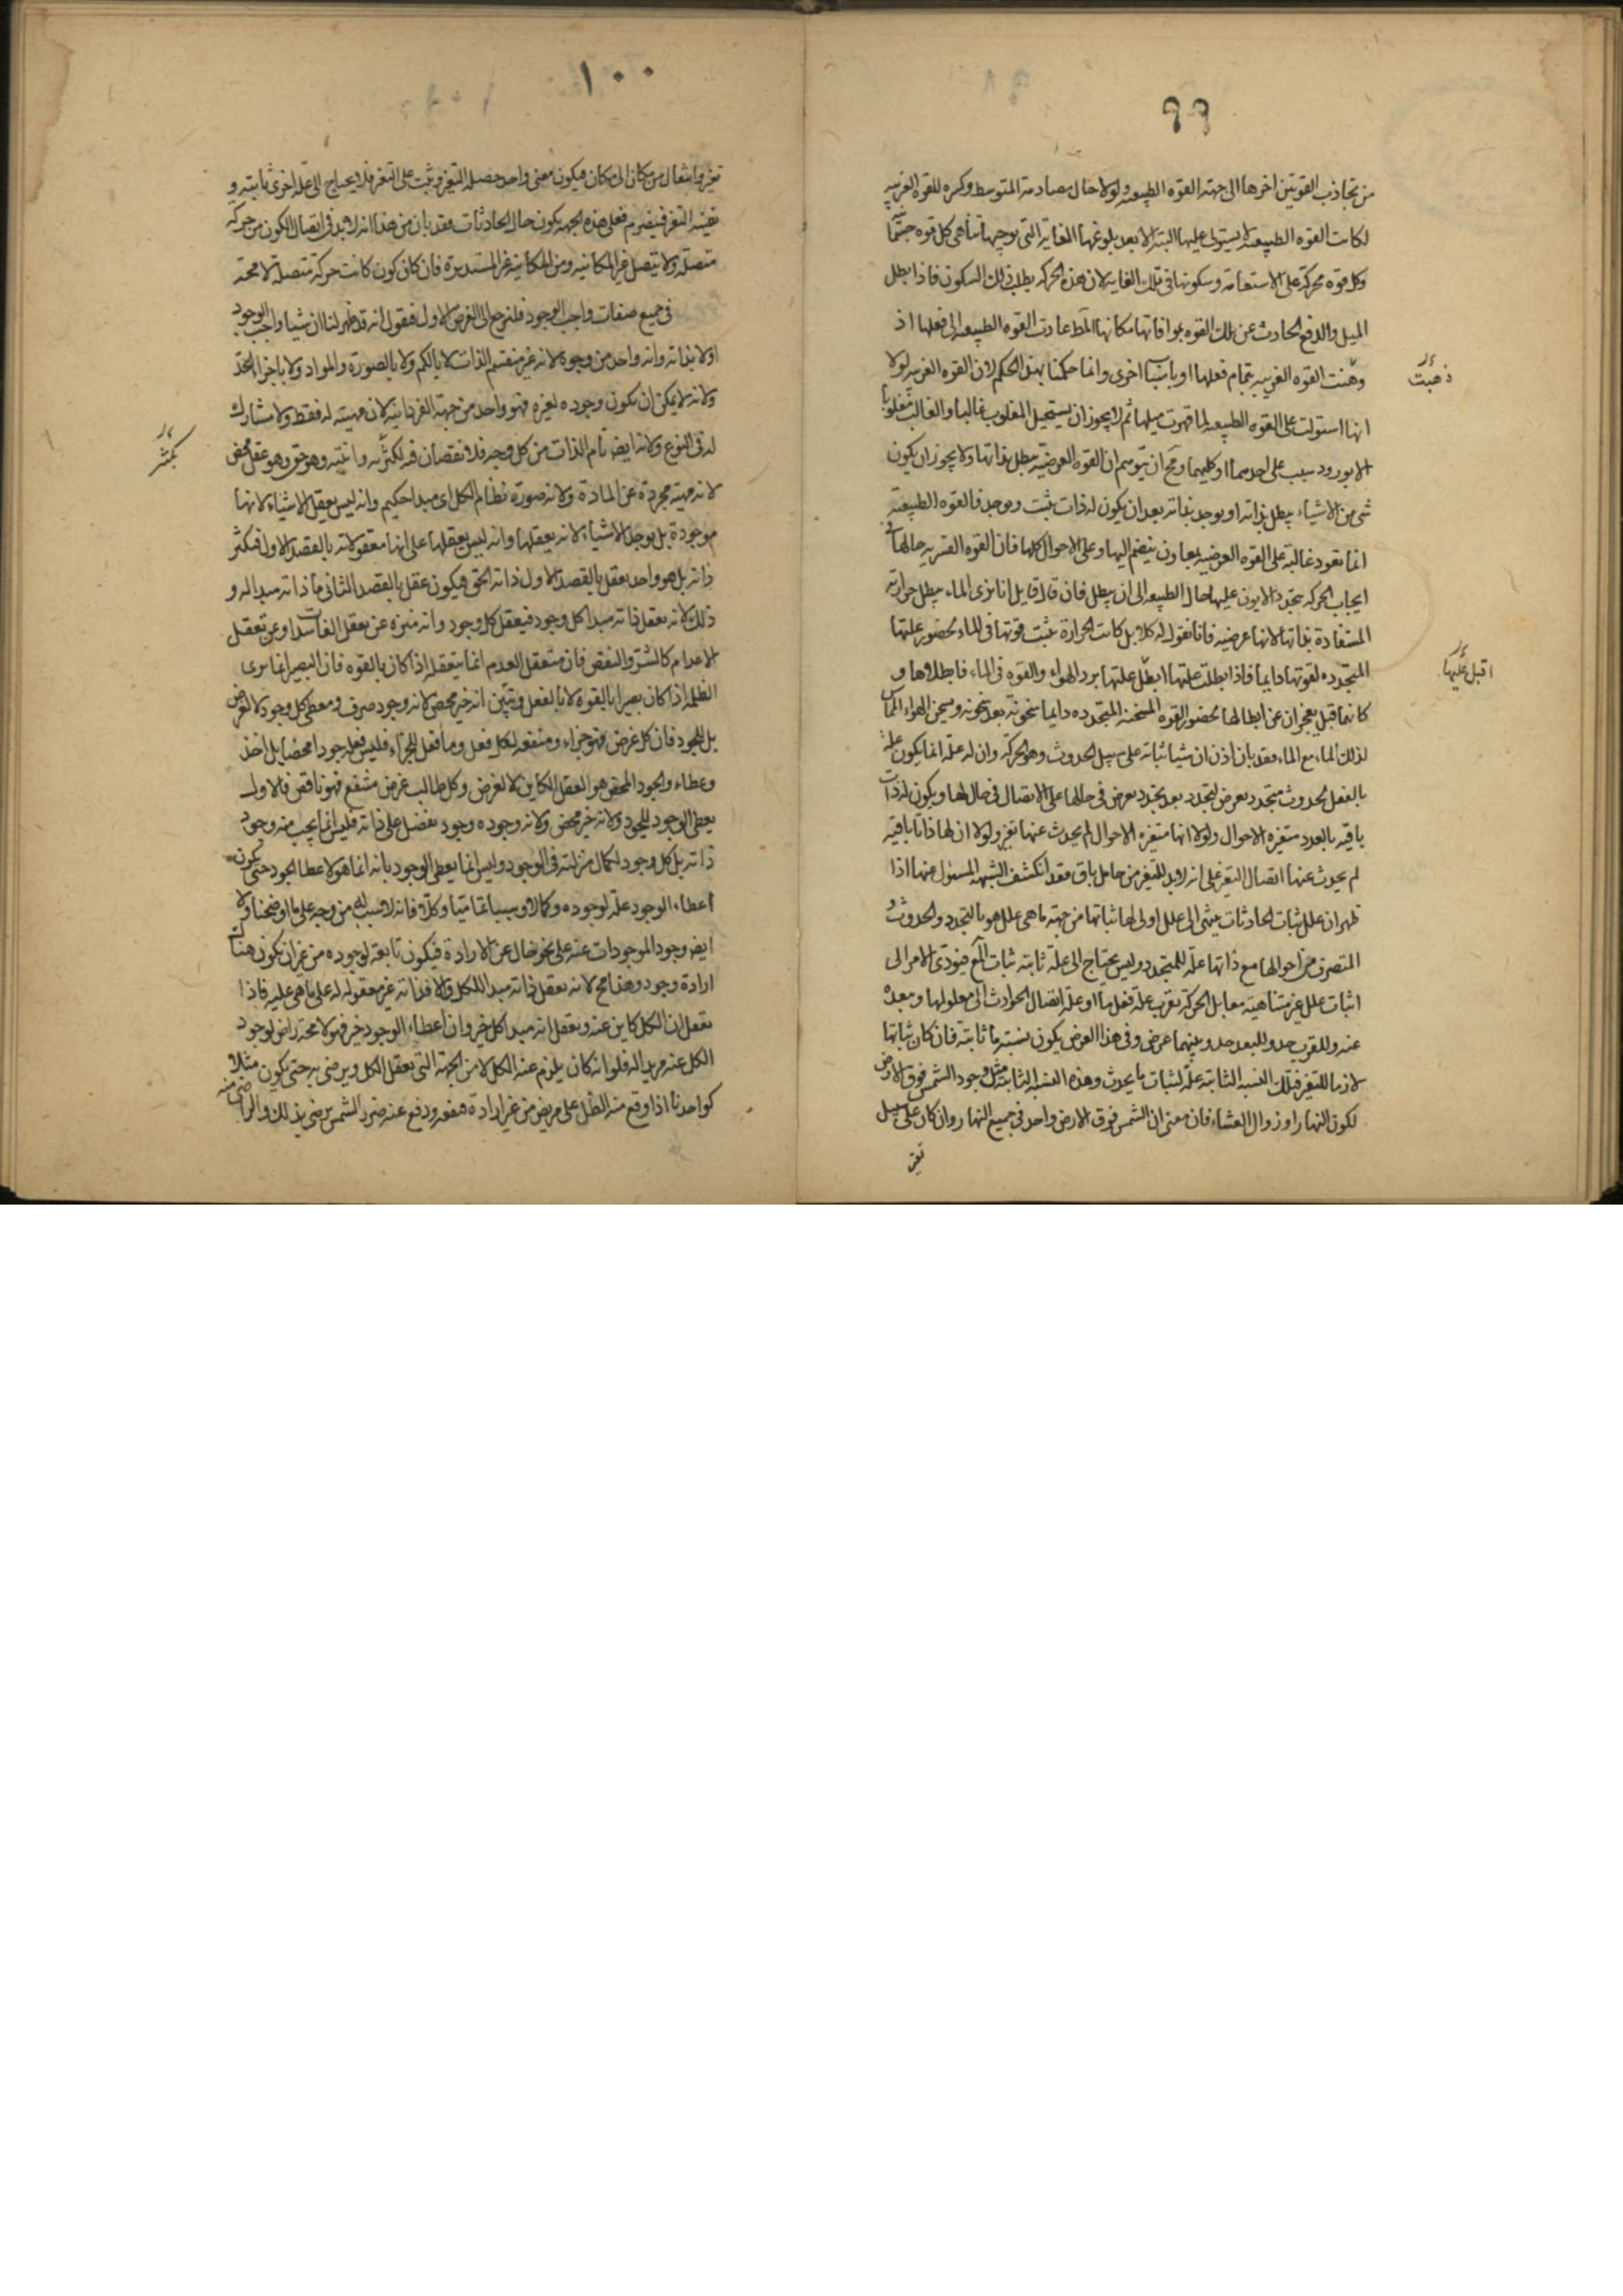 ٩٩
من تجاذب القوتين اخرها الى جهة القوه الطبيعيه ولولا حال مصادمة المتوسط وكسره للقوه الغريبه
لكانت القوه الطبيعيه لا يستولى عليها البته الا بعد بلوغها الغاية التى توجبها تناهى كل قوه جسمانيه
وكل قوه محركة على الاستقامة وسكونها فى تلك الغاية لان هذه الحركه يطلب ذلك السكون فاذا بطل
الميل والدفع الحادث عن تلك القوه بموافاتها مكانها عادت القوه الطبيعيه الى فعلها اذ
وهنت القوه الغريبه بتمام فعلها او باسباب اخرى وانما حكمنا بهذا الحكم لان القوه الغريبه لولا
ذهبت
انها استولت على القوه الطبيعيه لما قهرت ميلها ثم لا يجوز ان يستحيل المغلوب غالبا والغالب مغلوبا
الا بورود سبب على احدهما او كليهما ومح ان يتوهم ان القوه العرضيه تبطل بذاتها ولا يجوز ان يكون
شى من الاشياء يبطل بذاته او يوجد بذاته بعد ان يكون له ذات يثبت ويوجد فالقوه الطبيعيه
انما تعود غالبة على القوه العرضيه بمعاون ينضم اليها وعلى الاحوال كلها فان القوه القسريه حالها فى
ايجاب الحركه بتجدد الايون عليها حال الطبيعه الى ان يبطل فان قال قايل انا نرى الماء يبطل حرارته
المستفادة بذاتها لانها عرضيه فانا نقول له كلا بل كانت الحرارة يثبت قوتها فى الماء لحضور علتها
المتجدده لقوتها دايما فاذا بطلت علتها ابطل علتها برد الهواء والقوه فى الماء فابطلاها و
اقبل عليها
كانا قبل يعجزان عن ابطالها لحضور القوه المسخنه المتجدده دايما سخونة بعد سخونه ويسخن الهواء المماس
لذلك الماء مع الماء فقد بان اذن ان شيا ثباته على سبيل الحدوث وهو الحركه وان له علة انما يكون علة
بالفعل لحدوث متجدد يعرض لتجدد بعد تجدد يعرض فى حالها على الاتصال فى حال لها ويكون لها ذات
باقيه بالعدد متغيره الاحوال ولولا انها متغيره الاحوال لم يحدث عنها تغير ولولا ان لها ذاتا باقيه
لم يحدث عنها اتصال التغير على انه لا بد للتغير من حامل باق فقد انكشف الشبهه المسئول عنها اذا
ظهر ان علل ثبات الحادثات ينتهى الى علل اولى لها ثباتها من جهة ما هى علل هو بالتجدد والحدوث و
المتصرف من احوالها مع ذاتها علة للمتجدد وليس يحتاج الى علة ثابته ثبات فيؤدى الامر الى
اثبات علل غير متناهية معا بل الحركه تقرب علة فعلها او علة اتصال الحوادث الى معلولها وبعده
عنه وللقرب حد وللبعد حد وبينهما عرض وفى هذا العرض يكون نسبة ما ثابته فان كان ثباتها
لازما للتغير فتلك النسبه الثابته علة لثبات ما يحدث وهذه النسبه الثابته مثل وجود الشمس فوق الارض
لكون النهار او زوال العشاء فان معنى ان الشمس فوق الارض واحد فى جميع النهار وان كان على سبيل
تغير
١٠٠
تغير وانتقال من مكان الى مكان فيكون معنى واحد حصله التغير وثبت على التغير فلا يحتاج الى علة اخرى ثابته و
نفسه التغير فعلى هذه الجهه يكون حال الحادثات فقد بان من هذا انه لا بد فى اتصال الكون من حركه
متصله ولا يتصل غير المكانيه ومن المكانيه غير المستديرة فان كان كون كانت حركة متصله لا محة
فى جميع صفات واجب الوجود فلنرجع الى الغرض الاول فنقول انه قد ظهر لنا ان شيا واجب الوجود
اولا بذاته وانه واحد من وجوه لانه غير منقسم الذات لا بالكم ولا بالصورة والمواد ولا باجزاء الحد
ولانه لا يمكن ان يكون وجوده لغيره فهو واحد من جهة الفردانيه لان مهيته له فقط ولا مشارك
له فى النوع ولانه ايض تام الذات من كل وجه فلا نقصان فيه لكثره واثنيه وهو حق وهو عقل محض
بكثر
لانه مهية مجردة عن المادة ولانه صورة نظام الكل اى مبدا حكيم وانه ليس يعقل الاشياء لانها
موجودة بل يوجد الاشياء لانه يعقلها وانه ليس يعقلها على انها معقولاته بالقصد الاول فيكثر
ذاته بل هو واحد يعقل بالقصد الاول ذاته الحق فيكون عقل بالقصد الثانى ما ذاته مبدا له و
ذلك لانه يعقل ذاته مبدا كل وجود فيعقل كل وجود وانه منزه عن تعقل الفاسدات وعن تعقل
الاعدام كالشر والنقص فان متعقل العدم انما يتعقله اذا كان بالقوه فان البصير انما يرى
الظلمه اذا كان بصيرا بالقوه لا بالفعل وتبين انه خير محض لانه وجود صرف ومعطى كل وجود لا لغرض
بل للجود فان كل غرض فهو جزاء ومنفعه لكل فعل وما فعل للجزاء فليس فعله جودا محضا بل اخذ
وعطاء والجود المحض هو العقل الكاين لا لغرض وكل طالب غرض منتفع فهو ناقص فالاول
يعطى الوجود للجود ولانه خير محض ولانه وجوده وجود يفضل على ذاته فليس انما يجب منه وجود
ذاته بل كل وجود لكمال منزلته فى الوجود وليس انما يعطى الوجود بانه انما هو لاعطا الجود حتى يكون
اعطاء الوجود علة لوجوده وكمالا وسببا تماميا وكلا فانه لا سبب له من وجه على ما اوضحنا ولا
ايض وجود الموجودات عنه على نحو خال عن الارادة فيكون تابعة لوجوده من غير ان يكون هناك
ارادة وجود وهذا مح لانه يعقل ذاته مبدا للكل والا فذاته غير معقوله له على ما هى عليه فاذا
تعقل ان الكل كاين عنه ويعقل انه مبدا كل خير وان اعطاء الوجود خير فهو لا محة راض لوجود
الكل عنه مريد له فلو انه كان يلزم عنه الكل لا من الجهة التى تعقل الكل ويرضى به حتى يكون مثلا
كواحد منا اذا وقع منه الظل على مريض من غير ارادة فنفعه ودفع عنه ضرر الشمس يرضى بذلك والراضى منه